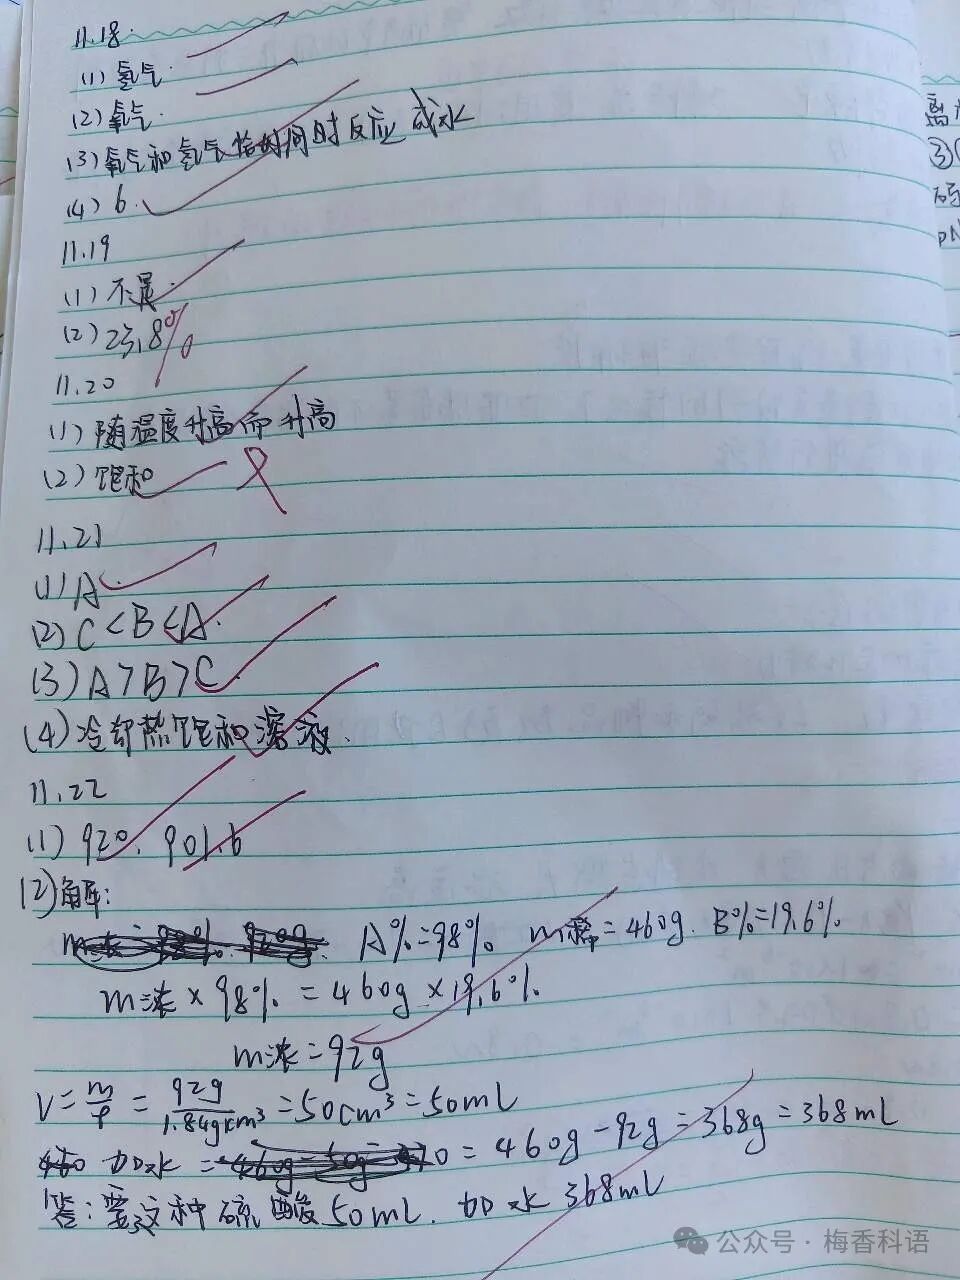 11.18.
(1) 氢气.
(2) 氧气.
(3) 氧气和氢气恰时间时反应成水
(4) 6.
11.19
(1) 不是.
(2) 23.8%
11.20
(1) 随温度升高而升高
(2) 饱和
11.21
(1) A.
(2) C<B<A.
(3) A>B>C.
(4) 冷却热饱和溶液.
11.22
(1) 920. 901.6
(2) 解:
A%=98% m稀=460g. B%=19.6%
m浓×98% = 460g×19.6%.
m浓=92g
V=m/ρ = 92g/1.84g/cm³ =50cm³=50mL
加水 = 460g-92g=368g=368mL
答: 要这种硫酸50mL. 加水368mL
公众号·梅香科语
离
③